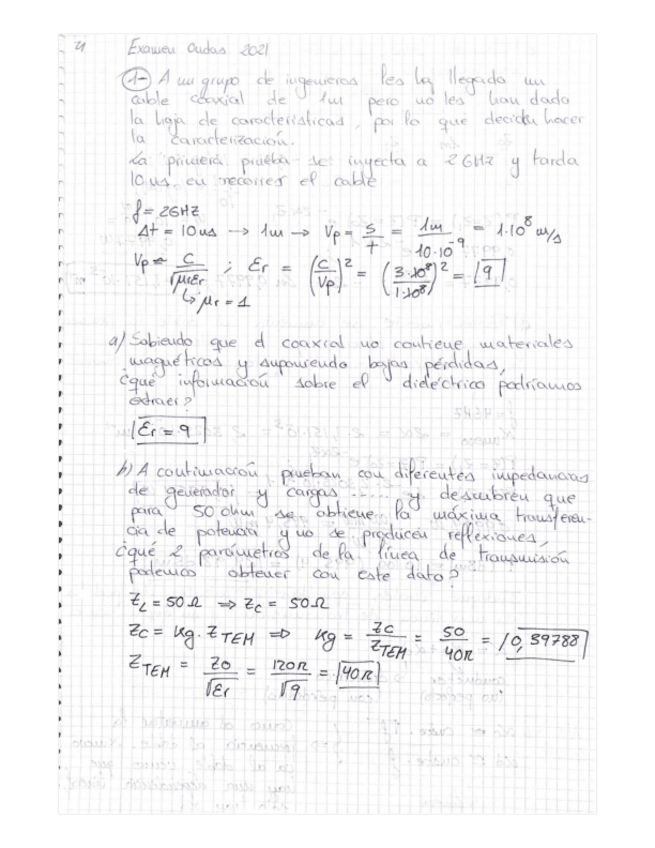 Examen Ondas 2021
1- A un grupo de ingenieros les ha llegado un
cable coaxial de 1m pero no les han dado
la hoja de características, por lo que deciden hacer
la caracterización.
La primera prueba se inyecta a 2GHz y tarda
10 ns en recorrer el cable
f = 2GHz
Δt = 10 ns → 1m → Vp = s/t = 1m/10·10⁻⁹ = 1·10⁸ m/s
Vp = c/√μrεr ; εr = (c/Vp)² = (3·10⁸/1·10⁸)² = 9
↳ μr = 1
a) Sabiendo que el coaxial no contiene materiales
magnéticos y suponiendo bajas pérdidas,
¿qué información sobre el dieléctrico podríamos
extraer?
εr = 9
b) A continuación, prueban con diferentes impedancias
de generador y cargas ..... y descubren que
para 50 ohm se obtiene la máxima transferen-
cia de potencia y no se producen reflexiones,
¿qué 2 parámetros de la línea de transmisión
podemos obtener con este dato?
ZL = 50Ω ⇒ Zc = 50Ω
Zc = Kg · ZTEM ⇒ Kg = Zc/ZTEM = 50/40π = 0,39788
ZTEM = Z0/√εr = 120π/√9 = 40π